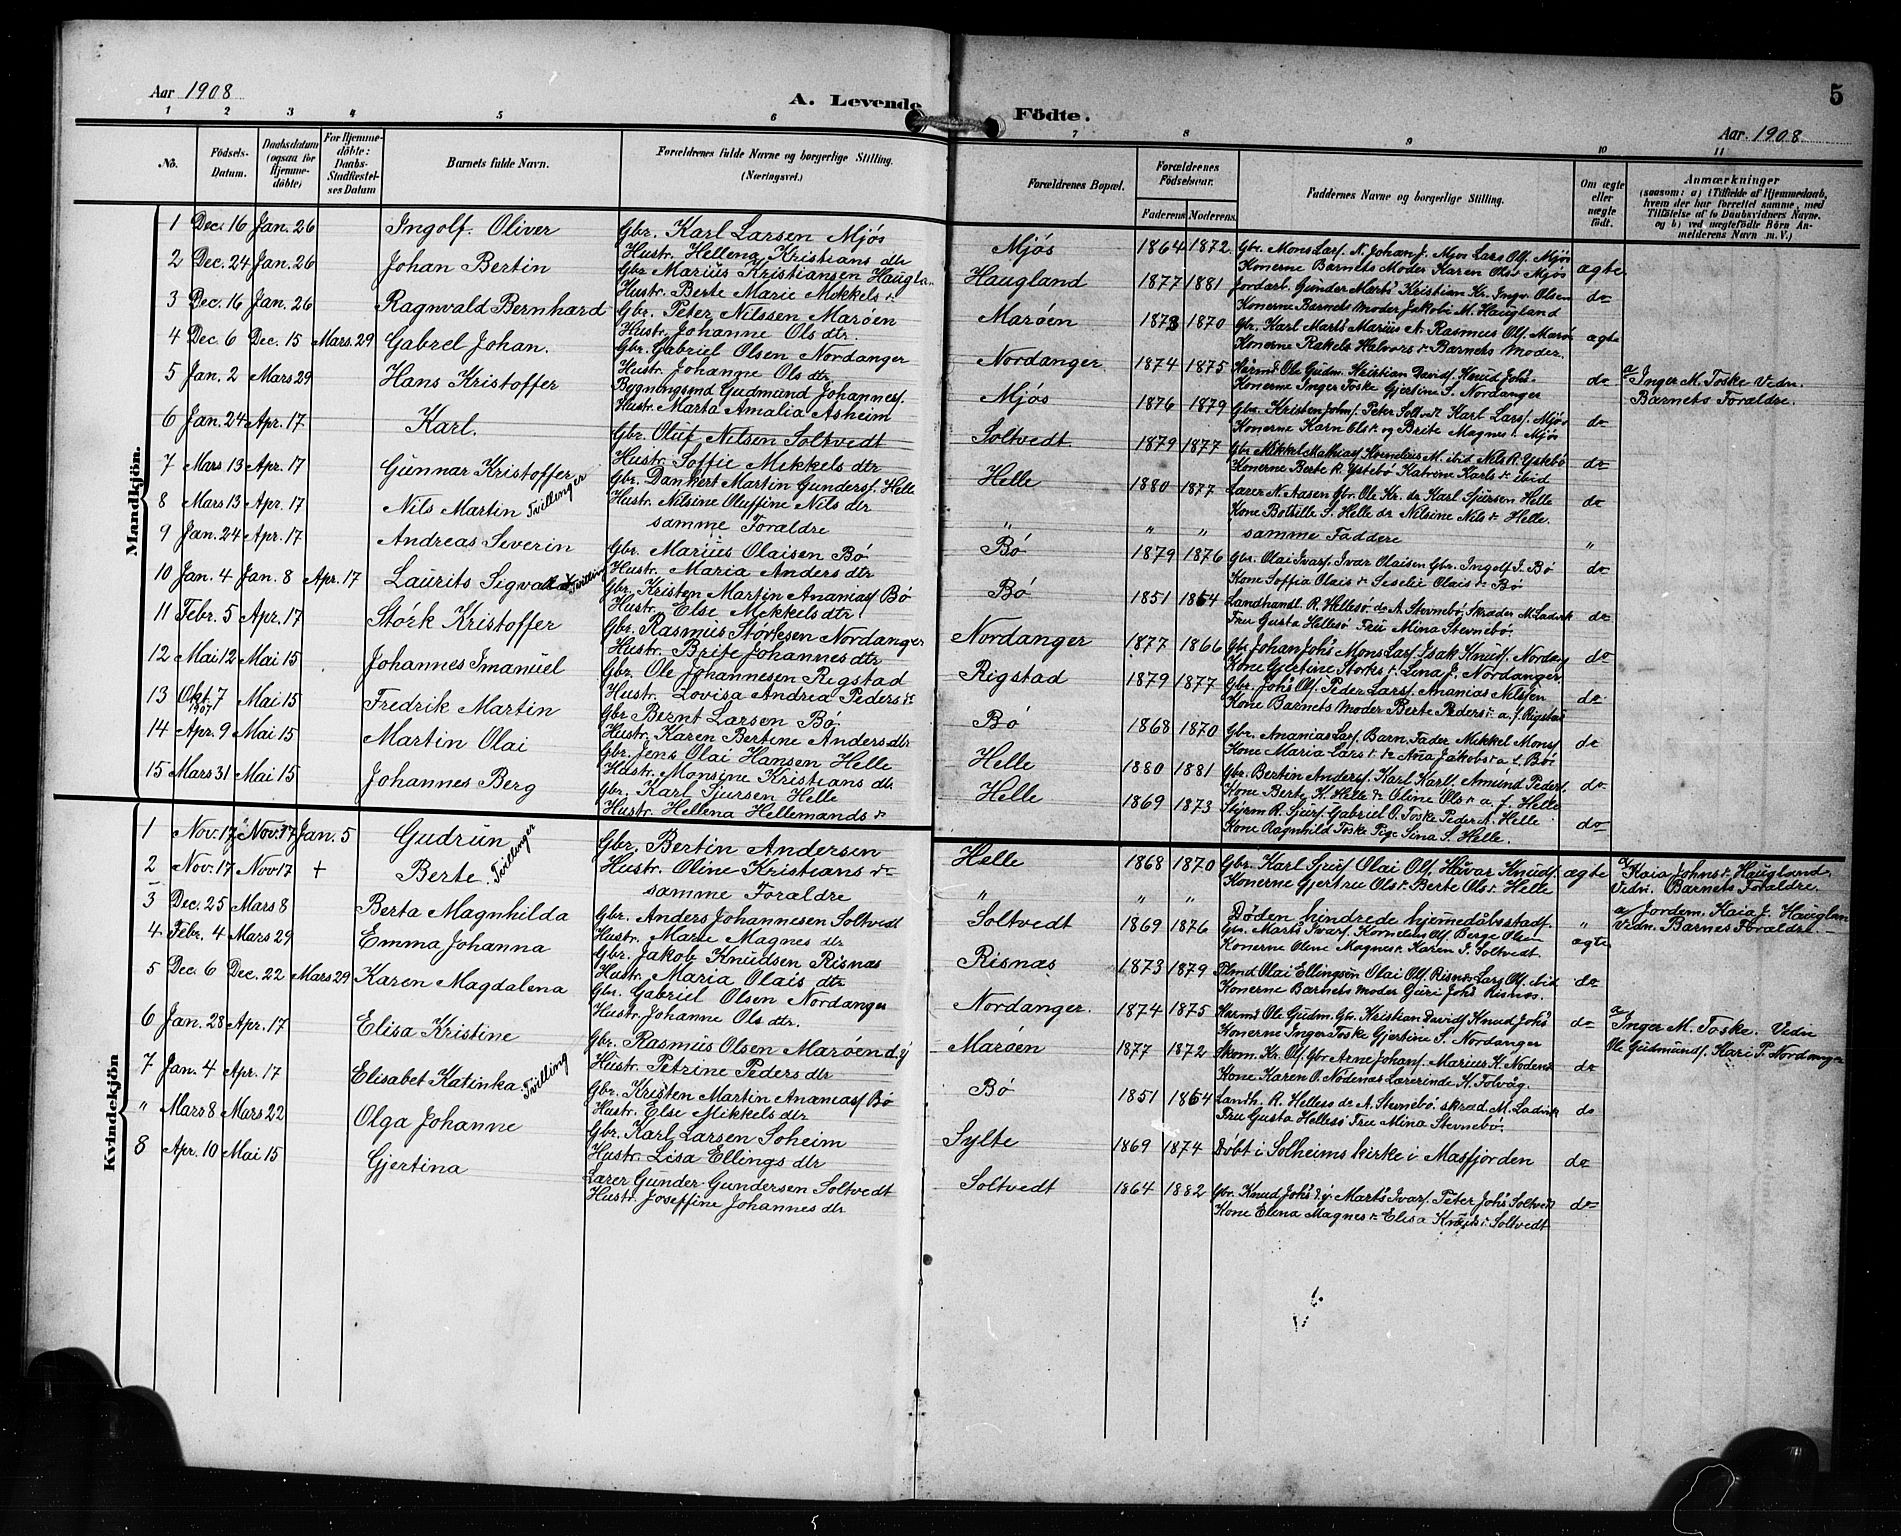 Aar 1908
A. Levende
Födte.
5
Aar 1908
1 2 3 4 5 6 7 8 9 10 11
No.
Födsels-Datum.
Daabsdatum (ogsaa for Hjemmedöbte)
For Hjemmedöbte: Daabs-Stadfæstelses Datum
Barnets fulde Navn.
Forældrenes fulde Navne og borgerlige Stilling. (Næringsvei.)
Forældrenes Bopæl.
Forældrenes Födselsaar.
Faderens Moderens
Faddernes Navne og borgerlige Stilling.
Om ægte eller uægte födt.
Anmærkninger
(saasom: a) i Tilfælde af Hjemmedaab, hvem der har forrettet samme, med Tilföielse af to Daabsvidners Navne. og b) ved uægtefödte Börn Anmelderens Navn m. V.)
Mandkjön.
1 Dec. 16 Jan. 26 Ingolf. Oliver
Gbr. Karl Larsen Mjøs
Hustr. Hellena Kristians dtr
Mjøs 1864 1872 ægte
Gbr. Mons Lars. N. Johan J. Mjøs Lars Ols. Mjøs
Konerne Barnets Moder Karen Olsdr Mjøs
2 Dec. 24 Jan. 26 Johan Bertin
Gbr Marius Kristiansen Haugla.
Hustr. Berte Marie Mekkels dr
Haugland 1877 1881 do
Jordarb. Gunder Marts Kristian Kr. Ingv. Olsen
Konerne Barnets Moder Jakobi M. Haugland
3 Dec. 16 Jan. 26 Ragnvald Bernhard
Gbr. Peter Nilssen Marøen
Hustr. Johanne Ols dtr.
Marøen 1873 1870 ægte
Gbr. Karl Marts Marius A. Rasmus Ols. Marø
Konerne Rakel Halvors dr Barnets Moder.
4 Dec. 6 Dec. 15 Mars. 29 Gabrel Johan.
Gbr. Gabriel Olsen Nordanger
Hustr. Johanne Ols dtr
Nordanger 1874 1875 do
Ole Gudm. Kristian Davids. Knud Johs.
Konerne Inger Toske Gjertine S. Nordanger
a Inger M. Toske Vedn.
Barnets Foraldre.
5 Jan. 2 Mars 29 Hans Kristoffer
Bygningsmd Gudmund Johannes.
Hustr. Marta Amalia Asheim
Mjøs 1876 1879 do
Gbr. Kristen Johns. Peter Karl Lars. Mjøs
Konerne Karn Olsdr og Brite Magnes dr Mjøs
6 Jan. 24 Apr. 17 Karl.
Gbr. Oluf Nilsen Soltvedt
Hustr. Soffie Mekkels dtr
Soltvedt 1879 1877 do
Gbr Mikkel Mathias Kornelius M. ibid Nils R. Ystebø
Konerne Berte R. Ystebø Katrine Karls dr ibid
7 Mars 13 Apr. 17 Gunnar Kristoffer
Tvillinger
Gbr. Dankert Martin Gunders. Helle
Hustr. Nilsine Oluffine Nils dtr
Helle 1880 1877 do
Lærer N. Aasen Gbr. Ole Kr. dr Karl Sjursen Helle
Kone Botsille S. Helle dr Nilsine Nils dr Helle.
8 Mars 13 Apr. 17 Nils Martin
samme Foraldre
" " " samme Faddere "
9 Jan. 24 Apr. 17 Andreas Severin
Gbr. Marius Olaisen Bø
Hustr. Maria Anders dtr
Bø 1879 1876 do
Gbr. Olai Ivars. Ivar Olaisen Gbr. Ingolf I. Bø
Kone Soffia Olais dr Seselie Olais dr Bø
10 Jan. 4 Jan. 8 Apr. 17 Laurits Sigvald Tvilling
Gbr. Kristen Martin Ananias. Bø
Hustr. Else Mekkels dtr
Bø 1851 1864 do
Landhandl. R. Hellesø dr A. Stevnebø, Skræder M. Ladvik
Fru Gusta Hellesø Fru Mina Stevnebø
11 Febr. 5 Apr. 17 Størk Kristoffer
Gbr. Rasmus Størksen Nordanger
Hustr. Brite Johannes dtr
Nordanger 1877 1866 do
Gbr Johan Johs Mons Lars. Isak Knuds. Nordang
Kone Gjertine Størks dr Lena J. Nordanger
12 Mai 12 Mai 15 Johannes Imanuel
Gbr. Ole Johannesen Rigstad
Hustr. Lovisa Andrea Peders dr
Rigstad 1879 1877 do
Gbr. Johs Ols. Peder Lars. Ananias Nilsen
Kone Barnets Moder Berte Peders dr a. f. Rigstad
13 Okt. 7 1907 Mai 15 Fredrik Martin
Gbr Bernt Larsen Bø
Hustr. Karen Bertine Anders dtr
Bø 1868 1870 do
Gbr. Ananias Lars. Barn. Fader Mekkel Mons.
Kone Maria Lars dr dr Ana Jakobs dr a. f. Bø
14 Apr. 9 Mai 15 Martin Olai
Gbr. Jens Olai Hansen Helle
Hustr. Monsine Kristians dtr
Helle 1880 1881 do
Gbr. Bertin Anders. Karl Karls. Amund Peders.
Kone Berte K. Helle dr Oline Ols dr a. f. Helle
15 Mars 31 Mai 15 Johannes Berg
Gbr. Karl Sjursen Helle
Hustr. Hellena Hellemands dr
Helle 1869 1873 do
Styrm. R. Sjurs. Gabriel O. Toske Peder A. Helle
Kone Ragnhild Toske Pige Sina S. Helle.
Kvindekjön
1 Nov. 17 Nov. 17 Jan. 5 Gudrun
Tvillinger
Gbr. Bertin Andersen
Hustr. Oline Kristians dr
Helle 1868 1870 ægte
Gbr. Karl Sjurs. Olai Ols. Havar Knuds.
Konerne Gjertru Ols dr Berte Ols dr Helle
a/ Kaia Johns dr Haugland
Vedn. Barnets Foraldre.
2 Nov. 17 Nov 17 + Berte.
samme Foraldre
" " " Døden hindrede hjemmedåbsstadf. "
a/ Jordem. Kaia J. Hauglan
Vedn. Barnes Foraldre
3 Dec. 25 Mars 8 Berta Magnhilda
Gbr. Anders Johannesen Soltvedt
Hustr. Marie Magnes dtr
Soltvedt 1869 1876 ægte
Gbr. Marts Ivars. Kornelius Ols. Berge Olsen
Konerne Oline Magnes dr Karen I. Soltvedt.
4 Febr. 4 Mars 29 Emma Johanna
Gbr. Jakob Knudsen Risnæs
Hustr. Maria Olais dtr
Risnæs 1873 1879 do
Olai Ellingsen Olai Ols. Risnæs Lars Ols. ibid
Konerne Barnets Moder Guri Johs Risnæs.
5 Dec. 6 Dec. 22 Mars 29 Karen Magdalena
Gbr. Gabriel Olsen Nordanger
Hustr. Johanne Ols dtr.
Nordanger. 1874 1875 do
Ole Gudm. Gbr. Kristian Davids. Knud Johs
Konerne Inger Toske Gjertine S. Nordanger
a Inger M. Toske. Vedn
Ole Gudmunds. Kari P. Nordanger
6 Jan. 28 Apr. 17 Elisa Kristine
Gbr. Rasmus Olsen Marøen d. y
Hustr. Petrine Peders dtr
Marøen 1877 1872 do
Skom. Kr. Ols. Gbr Arne Johans. Marius K. Nødenæs
Kone Karen O. Nødenæs Lærerinde K. Folvåg.
7 Jan. 4 Apr. 17 Elisabet Katinka Tvilling
Gbr. Kristen Martin Ananias. Bø
Hustr. Else Mikkels dtr
Bø 1851 1864 do
Landh. R. Hellesø dr A. Stevnebø, skræd. M. Ladvik
Fru Gusta Hellesø Fru Mina Stevnebø.
" Mars 8 Mars 22 Olga Johanne
Gbr. Karl Larsen Soheim
Hustr. Lisa Ellings dtr
Sylte 1869 1874 Døbt i Solheims kirke i Masfjorden do
8 Apr. 10 Mai 15 Gjertina
Lærer Gunder Gundersen Soltvedt
Hustr. Joseffine Johannes dtr
Soltvedt 1864 1882 do
Gbr. Knud Johs d. y. Marts Ivars. Peter Johs Soltvedt
Kone Elena Magnes dr Elisa Knuds dr Soltvedt
5